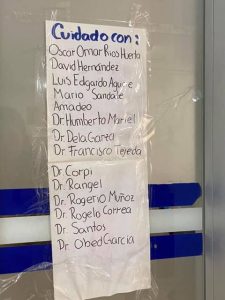 Cuidado con:
Oscar Omar Rios Huerta
David Hernández
Luis Edgardo Aguirre
Mario Sandate
Amadeo
Dr. Humberto Mariel
Dr. Dela Garza
Dr. Francisco Tejeda
Dr. Corpi
Dr. Rangel
Dr. Rogerio Muñoz
Dr. Rogelo Correa
Dr. Santos
Dr. Obed Garcia